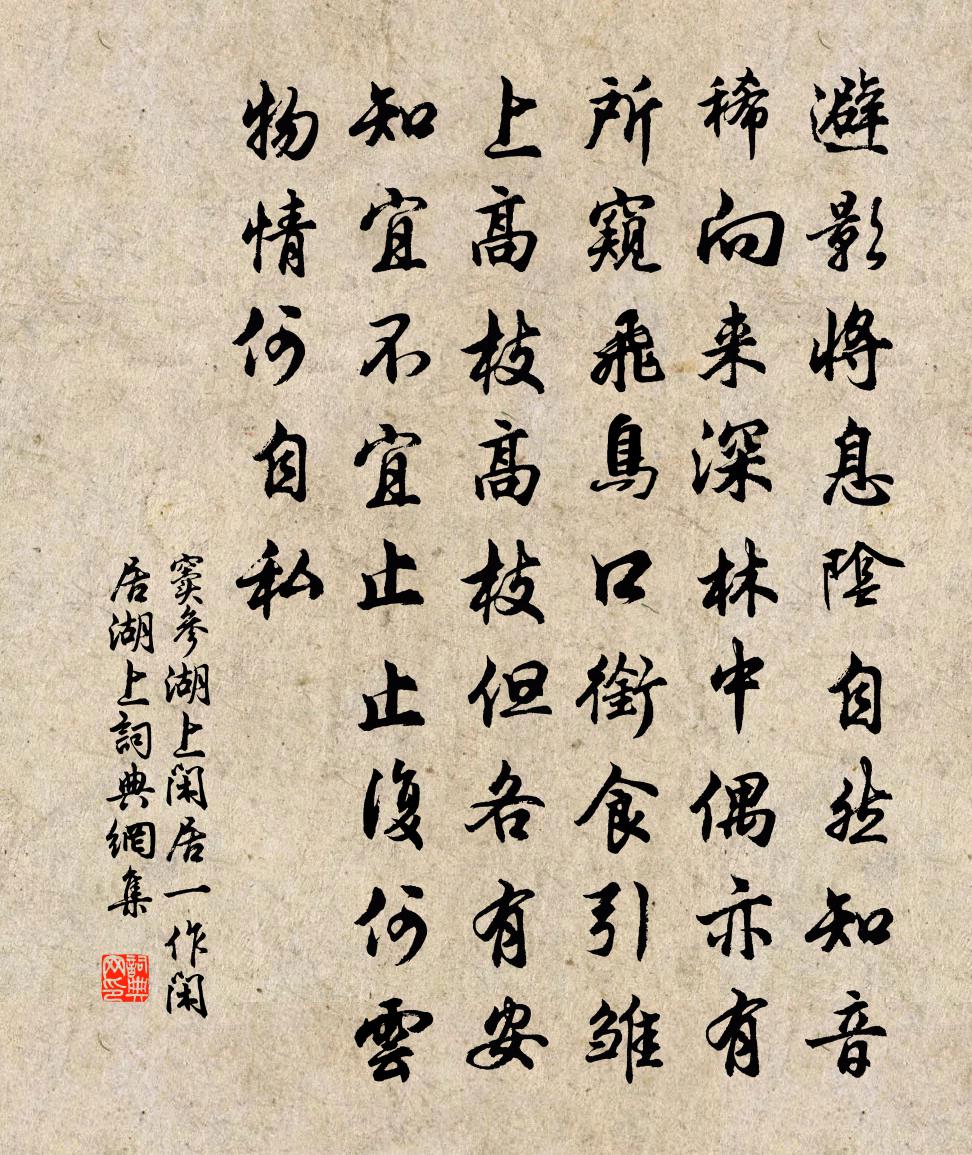 避影將息陰自然知音
稀向来深林中偶亦有
所窺飛鳥口銜食引雏
上高枝高枝但各有安
知宜不宜止止復何雲
物情何自私
窦參湖上闲居一作闲
居湖上詞典網集
詞典网印